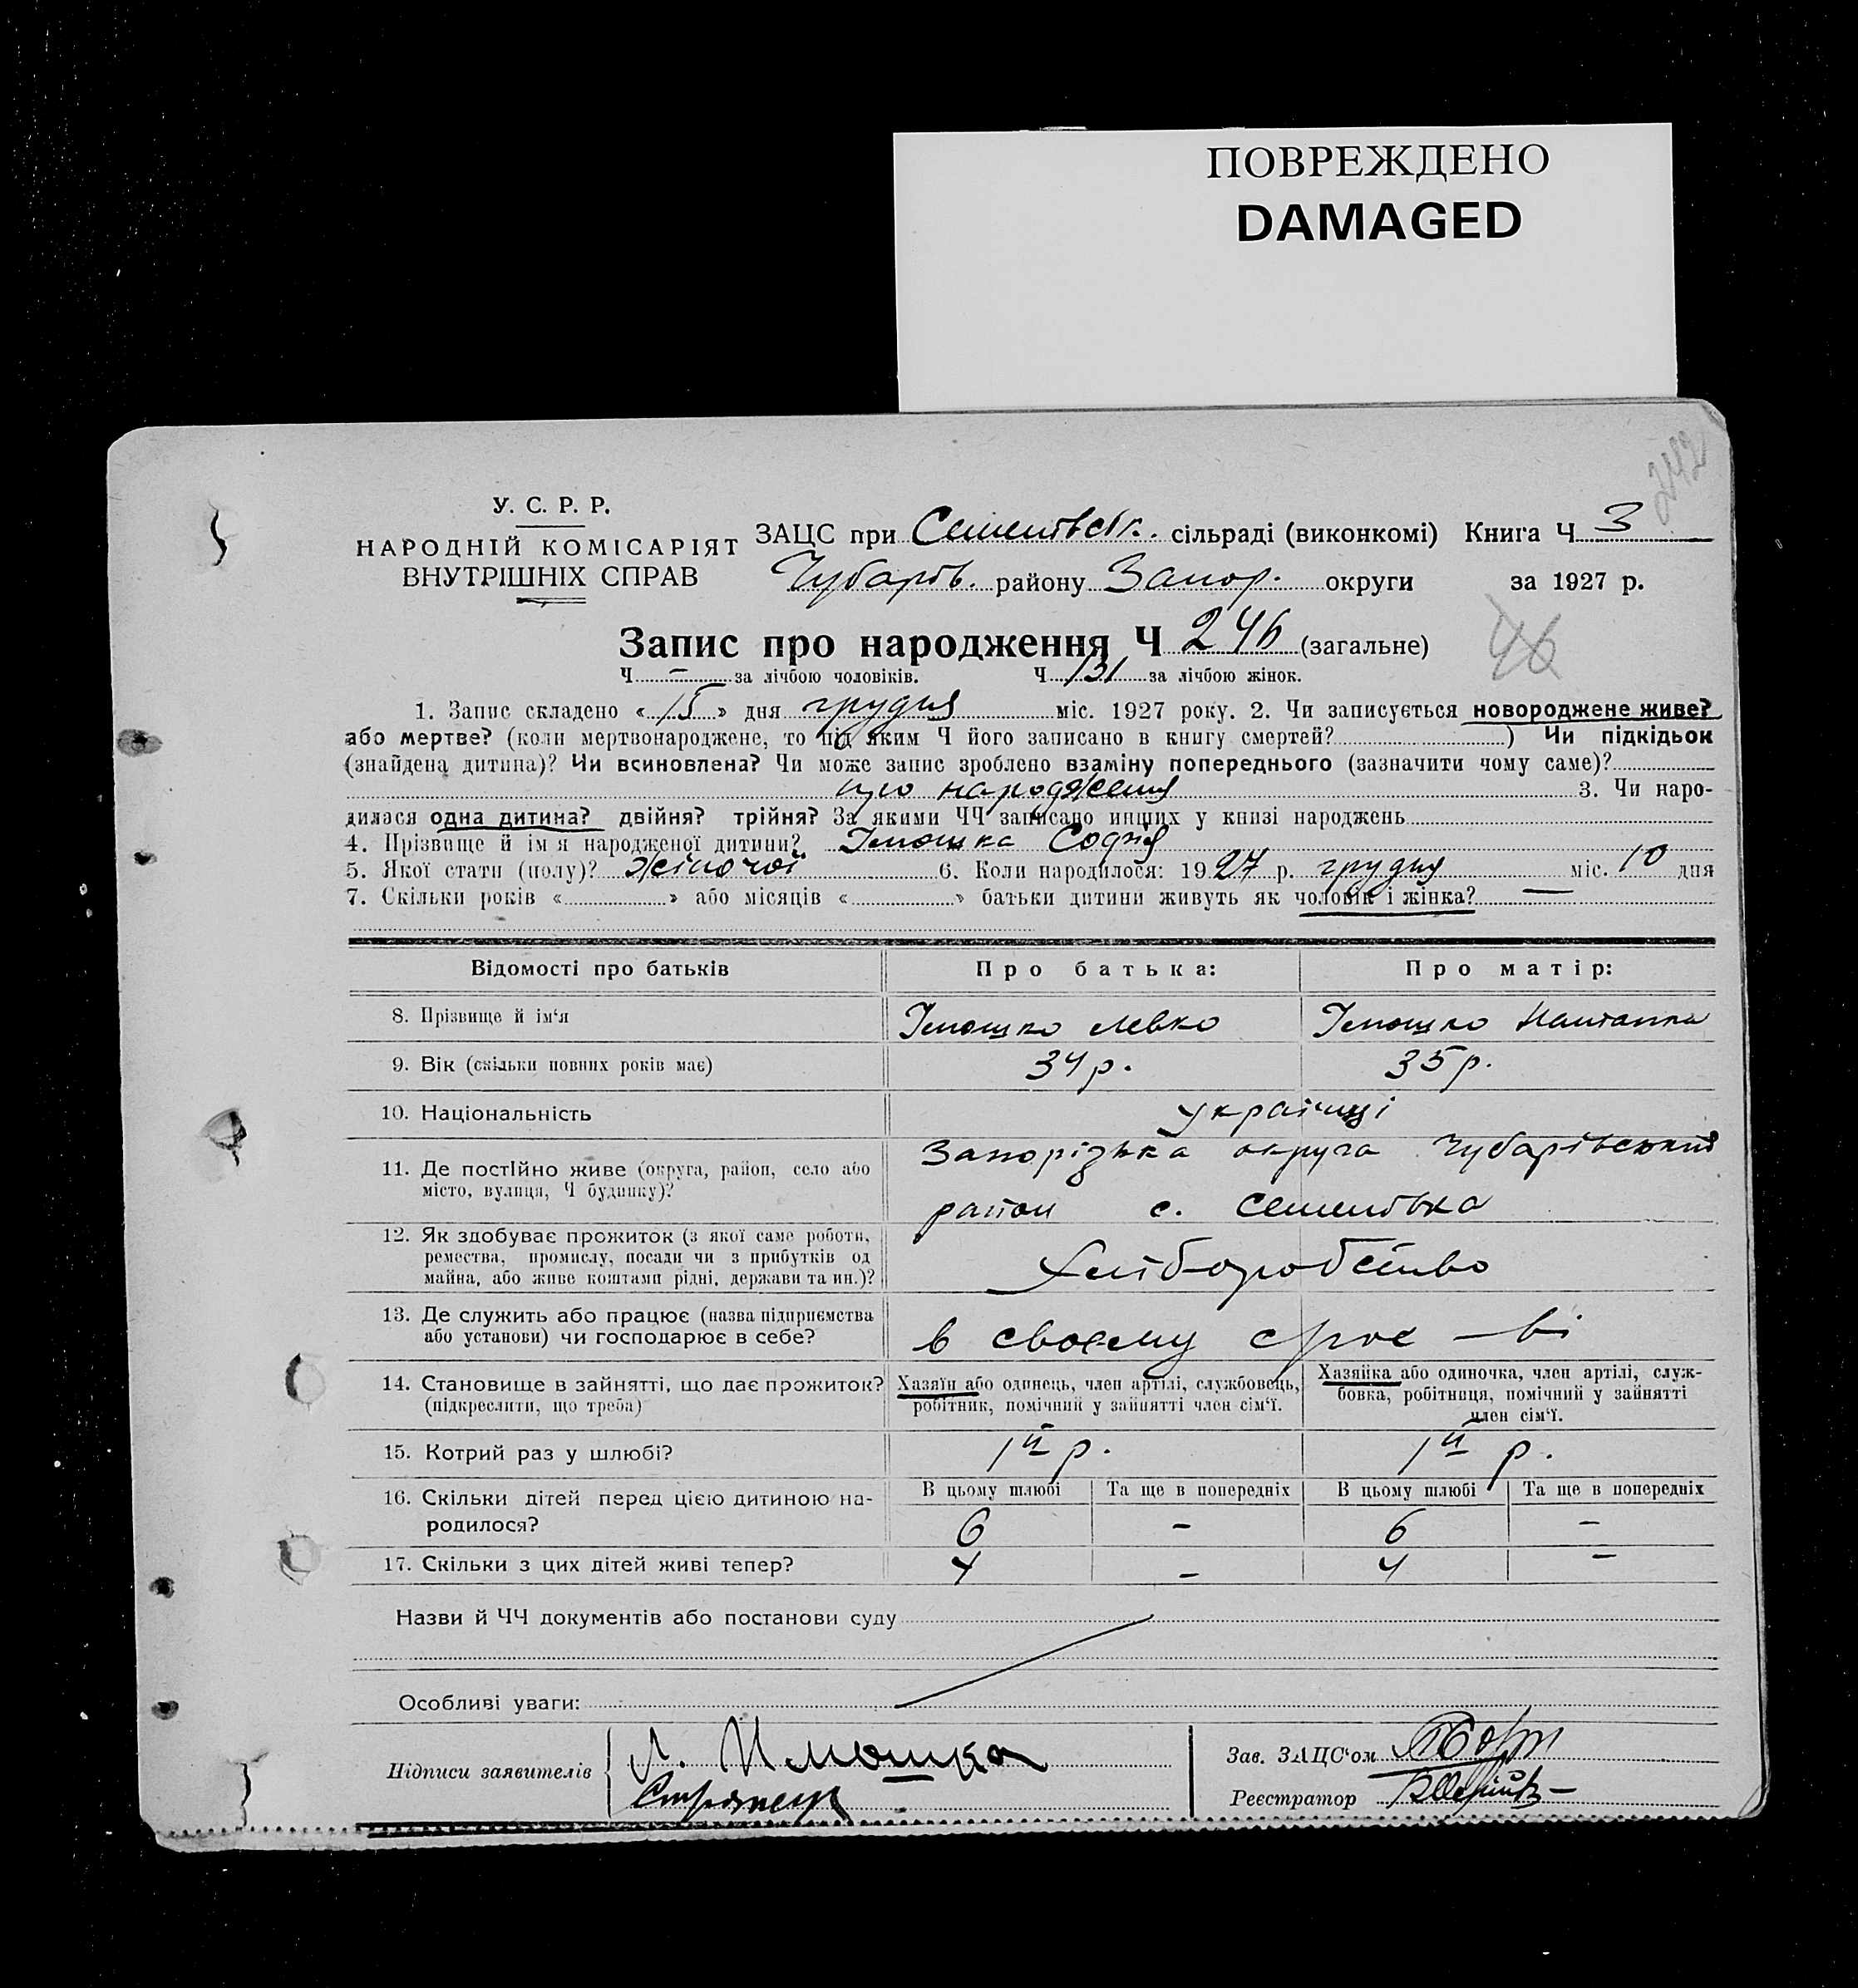 ПОВРЕЖДЕНО
DAMAGED
242
У. С. Р. Р.
НАРОДНІЙ КОМІСАРІЯТ
ВНУТРІШНІХ СПРАВ
ЗАЦС при Семенівськ. сільраді (виконкомі) Книга Ч 3
Чубарів. району Запор. округи за 1927 р.
Запис про народження Ч 246 (загальне)
46
Ч. – за лічбою чоловіків. Ч 131 за лічбою жінок.
1. Запис складено « 15 » дня грудня міс. 1927 року. 2. Чи записується новороджене живе?
або мертве? (коли мертвонароджене, то під яким Ч його записано в книгу смертей? ) Чи підкідьок
(знайдена дитина)? Чи всиновлена? Чи може запис зроблено взаміну попереднього (зазначити чому саме)?
про народження 3. Чи наро-
дилася одна дитина? двійня? трійня? За якими ЧЧ записано инших у книзі народжень
4. Прізвище й ім'я народженої дитини? Ілюшка Софія
5. Якої стати (полу)? жіночої 6. Коли народилося: 1927 р. грудня міс. 10 дня
7. Скільки років « » або місяців « » батьки дитини живуть як чоловік і жінка? —
Відомості про батьків Про батька: Про матір:
8. Прізвище й ім'я Ілюшко Левко Ілюшко
9. Вік (скільки повних років має) 34 р. 35 р.
10. Національність українці
11. Де постійно живе (округа, район, село або Запорізька округа Чубарівський
місто, вулиця, Ч будинку)? район с. Семенівка
12. Як здобуває прожиток (з якої саме роботи,
ремества, промислу, посади чи з прибутків од
майна, або живе коштами рідні, держави та ин.)? Хліборобство
13. Де служить або працює (назва підприємства
або установи) чи господарює в себе? в своєму
14. Становище в зайнятті, що дає прожиток? Хазяїн або одинець, член артілі, службовець, Хазяйка або одиночка, член артілі, служ-
(підкреслити, що треба) робітник, помічний у зайнятті член сім'ї. бовка, робітниця, помічний у зайнятті
член сім'ї.
15. Котрий раз у шлюбі? 1й р. 1й р.
16. Скільки дітей перед цією дитиною на- В цьому шлюбі Та ще в попередніх В цьому шлюбі Та ще в попередніх
родилося? 6 – 6 –
17. Скільки з цих дітей живі тепер? 4 – 4 –
Назви й ЧЧ документів або постанови суду
Особливі уваги:
Підписи заявителів Л. Илюшка Зав. ЗАЦС'ом
Реєстратор